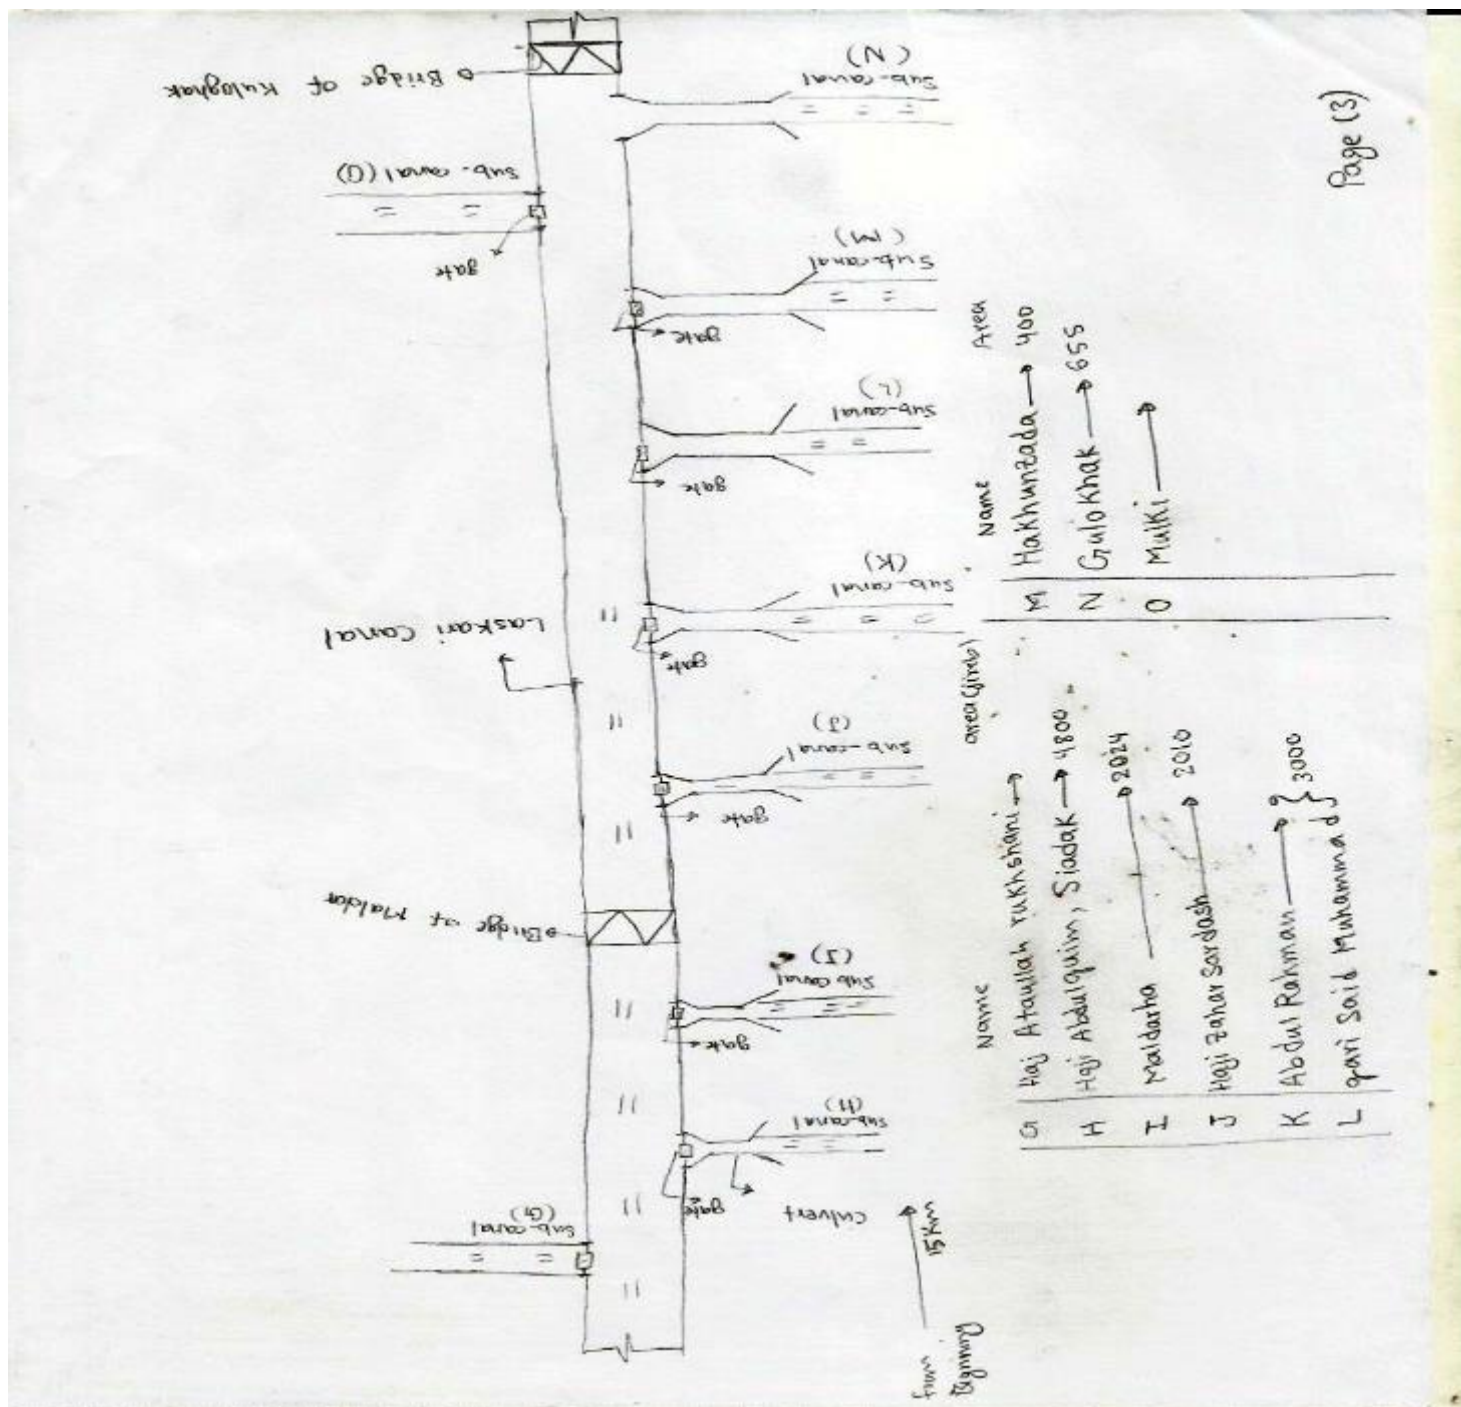 Page (3)
Bridge of Kuloghak
Sub-canal
(N)
Sub-canal (O)
gate
Sub-canal
(M)
gate
Sub-canal
(L)
gate
Sub-canal
(K)
gate
Laskari Canal
Sub-canal
(J)
gate
Bridge of Maldar
Sub canal
(I)
gate
Sub-canal
(H)
gate
culvert
Sub-canal
(G)
From Beginning
15 Km
Name area (jirib)
G Haj Ataullah rukhshani →
H Haji Abdulquim, Siadak → 4800
I Maldarha → 2024
J Haji Zahar Sardash → 2010
K Abdul Rahman → } 3000
L qari Said Muhammad
Name Area
M Hakhunzada → 400
N Gulokhak → 655
O Mulki →